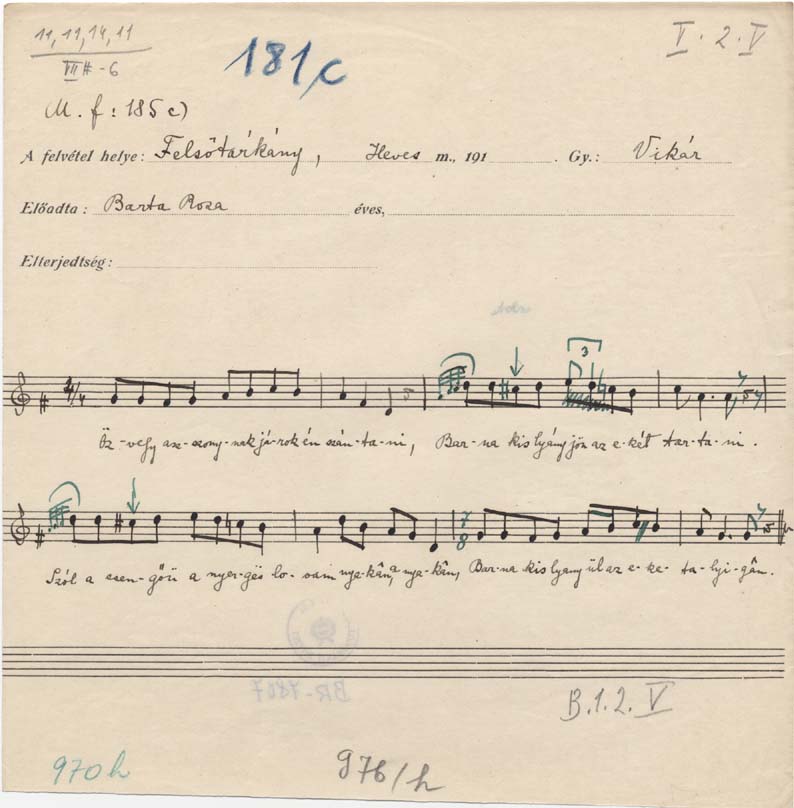 11, 11, 14, 11
VII# - 6
181/c
I. 2. V
M. f: 185 c)
A felvétel helye: Felsőtárkány, Heves m., 191 . Gy.: Vikár
Előadta: Barta Roza éves,
Elterjedtség:
3
4/4
Öz-vegy asz-szony-nak já-rok én szán-ta-ni, Bar-na kis lyány jön az e-két tar-ta-ni.
7/8
Szól a csen-gőü a nyer-gës lo-vam nya-kân, a nya-kân, Bar-na kis lyany ül az e-ke-ta-lyi-gân.
BR-7807
B.1.2. V
970 h
976/h